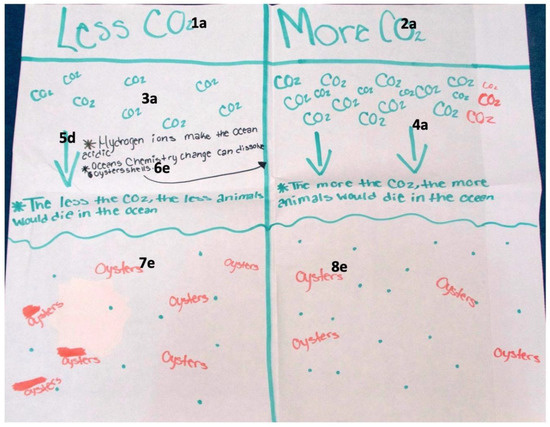 Less CO2 1a
More CO2 2a
CO2 CO2 CO2
CO2 CO2 3a
CO2 CO2
CO2 CO2 CO2 CO2 CO2
CO2 CO2 CO2 CO2 CO2 CO2
CO2 CO2 CO2 CO2
CO2
5d
4a
* Hydrogen ions make the ocean
acidic
* Oceans Chemistry change can dissolve
oystersshells 6e
* The less the CO2, the less animals
would die in the ocean
* The more the CO2, the more
animals would die in the ocean
7e
Oysters Oysters
Oysters Oysters
Oysters Oysters
Oysters
8e
Oysters
Oysters
Oysters
Oysters